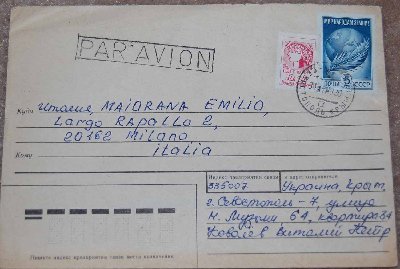 PAR AVION
МИР НАРОДАМ ЗЕМЛИ
ПОЧТА СССР
Куда Италия, MAIORANA EMILIO,
Largo RAPALLO 2,
20162 Milano
Кому italia
Индекс предприятия связи и адрес отправителя
335007 Украина, Крым
г. Севастополь - 7, улица
Н. Музыки 64, квартира 34
Ковалев Виталий
Пишите индекс предприятия связи места назначения